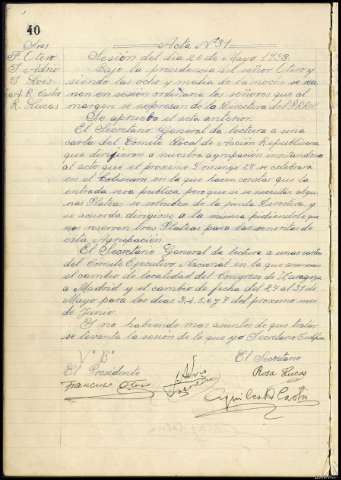 40
Acta Nº 31
Sres
F. Otero
Sesión del día 26 de Mayo 1933
Bajo la presidencia del señor Otero y
siendo las ocho y media de la noche se reu
A. R. Castro
nen en sesión ordinaria los señores que al
R. Lucas
margen se expresan de la Directiva del
Se aprueba el acta anterior.
El Secretario General da lectura a una
carta del Comité Local de Acción Republicana
que dirigieron a nuestra agrupación invitandonos
al acto que el proximo Domingo 28 se celebrara
en el Coliseum en la que hacen constar que la
entrada sera publica pero que si se necesitan algu
nas Plateas se retiren de la Junta Directiva y
se acuerda dirigirse a la misma pidiendole que
nos reserven tres Plateas para las señoritas de
esta Agrupación.
El Secretario General da lectura a una carta
del Comité Ejecutivo Nacional en la que anuncian
el cambio de localidad del Congreso de Zaragoza
a Madrid y el cambio de fecha del 27 al 31 de
Mayo para los dias 3, 4, 5, 6 y 7 del proximo mes
de Junio.
Y no habiendo mas asuntos de que tratar
se levanta la sesión de lo que yo Secretario Certifico
Vº Bº
El Secretario
El Presidente
Rosa Lucas
Francisco Otero